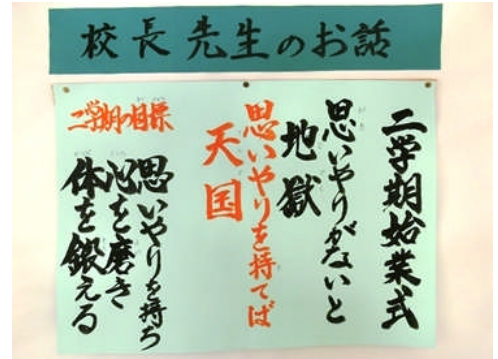 校長先生のお話
二学期始業式
思いやりがないと
地獄
思いやりを持てば
天国
二学期の目標
思いやりを持ち
心を磨き
体を鍛える